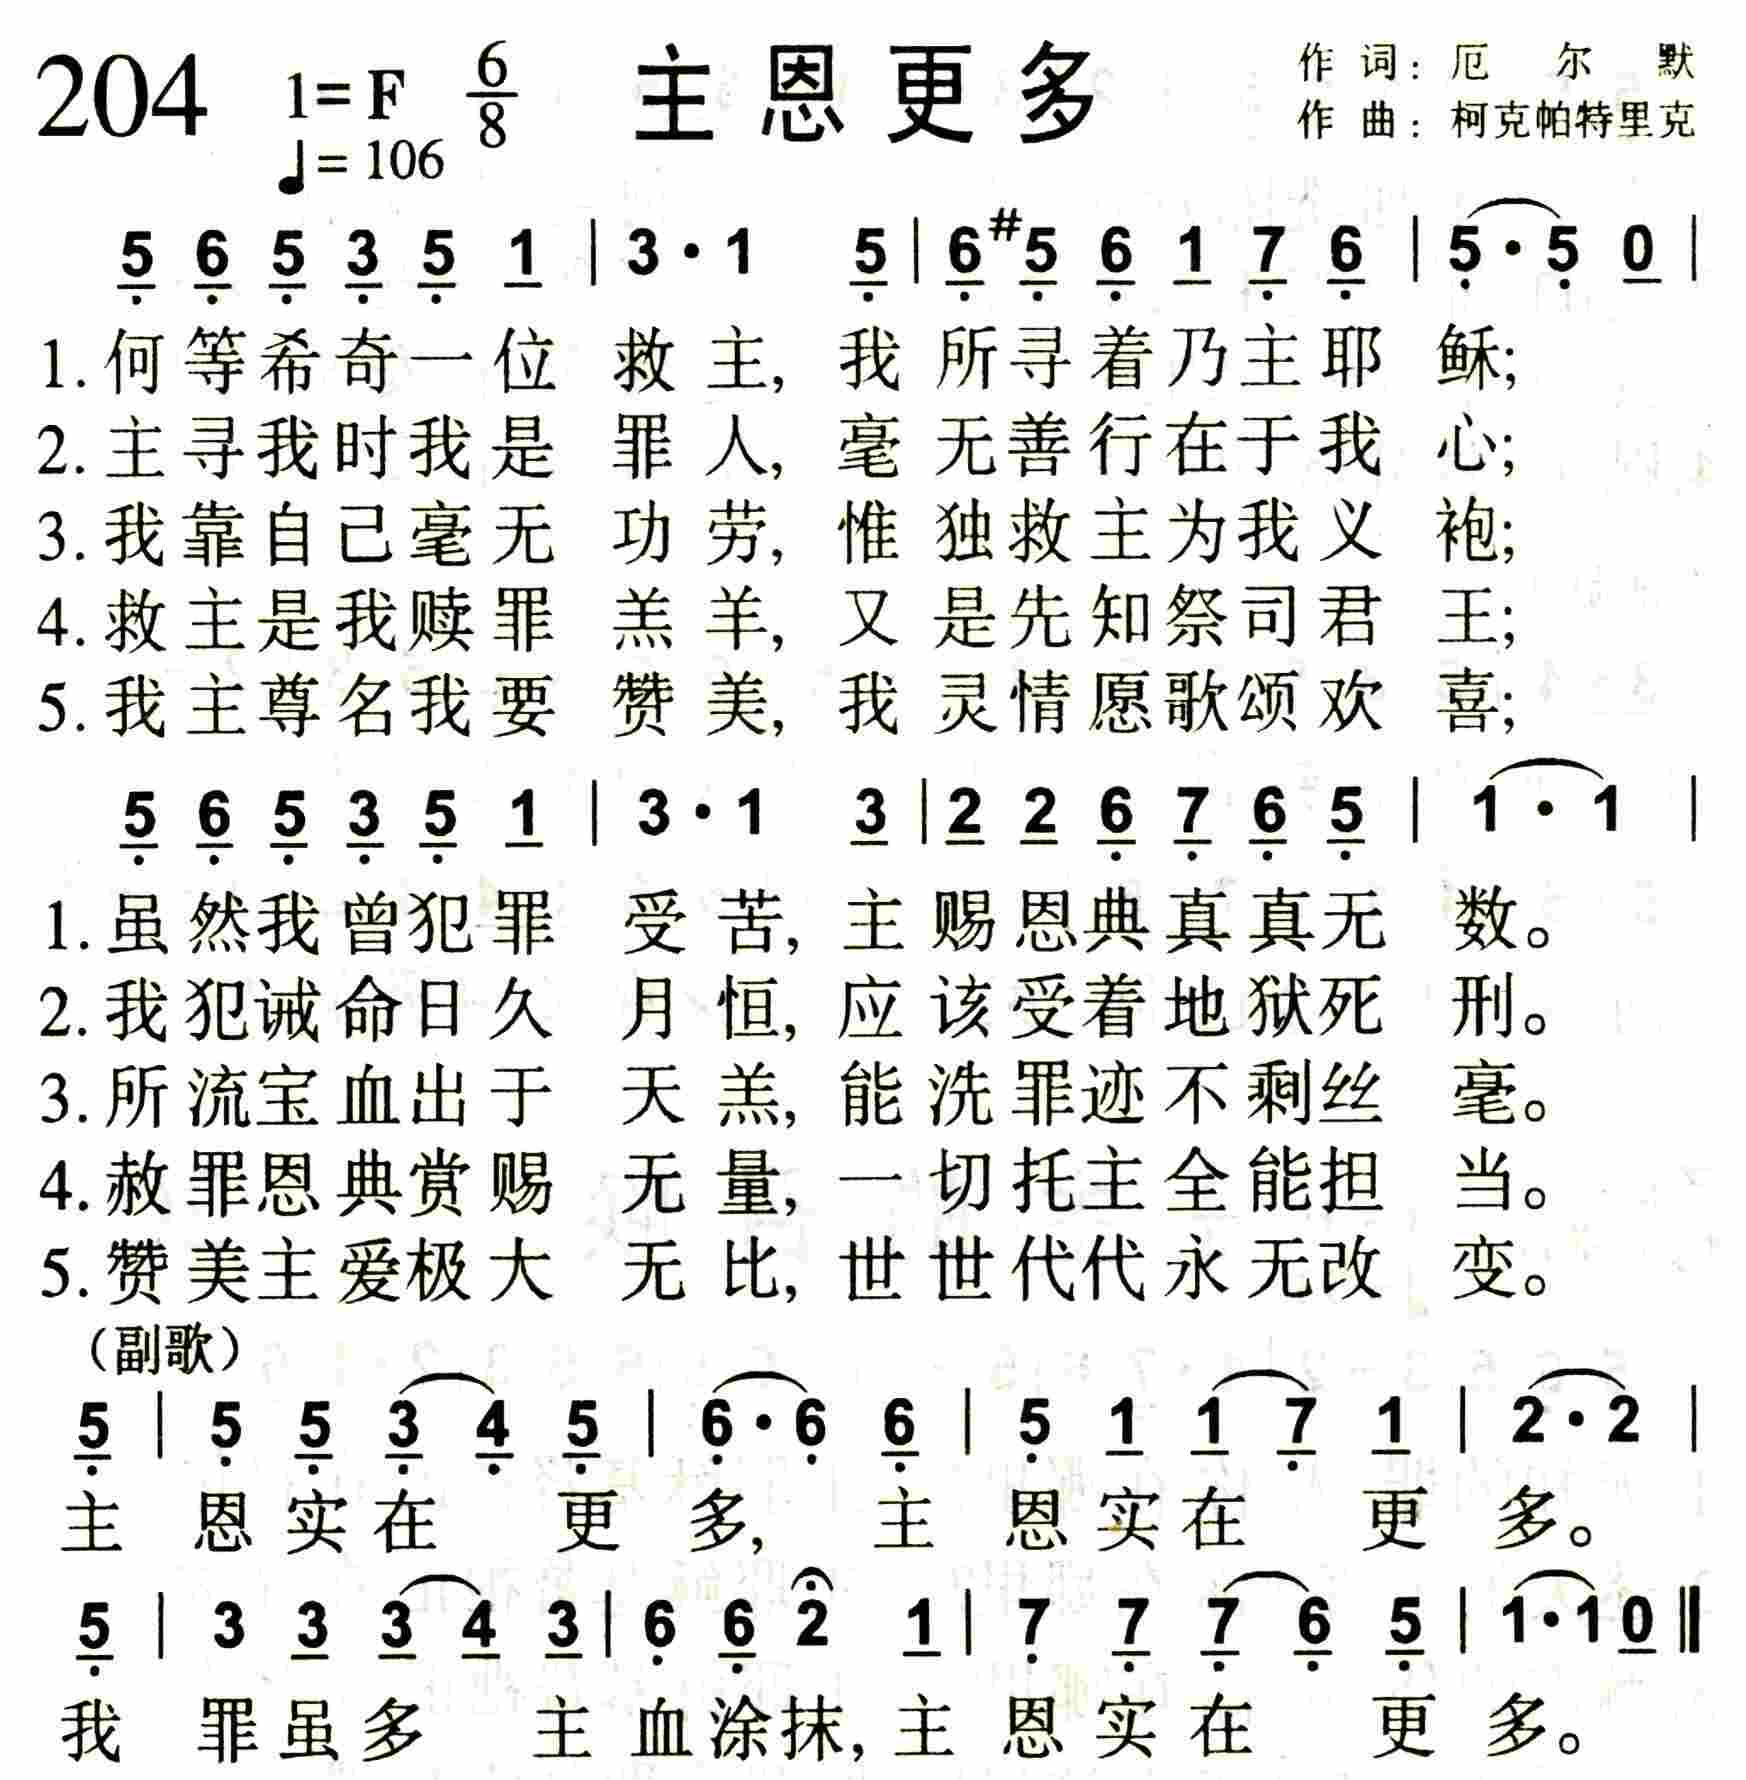 204 1=F 6/8 主恩更多 作词：厄尔默
♩=106 作曲：柯克帕特里克
5 6 5 3 5 1 | 3·1 5 | 6 #5 6 1 7 6 | 5·5 0 |
1.何等希奇一位救主,我所寻着乃主耶稣;
2.主寻我时我是罪人,毫无善行在于我心;
3.我靠自己毫无功劳,惟独救主为我义袍;
4.救主是我赎罪羔羊,又是先知祭司君王;
5.我主尊名我要赞美,我灵情愿歌颂欢喜;
5 6 5 3 5 1 | 3·1 3 | 2 2 6 7 6 5 | 1·1 |
1.虽然我曾犯罪受苦,主赐恩典真真无数。
2.我犯诫命日久月恒,应该受着地狱死刑。
3.所流宝血出于天羔,能洗罪迹不剩丝毫。
4.赦罪恩典赏赐无量,一切托主全能担当。
5.赞美主爱极大无比,世世代代永无改变。
（副歌）
5 | 5 5 3 4 5 | 6·6 6 | 5 1 1 7 1 | 2·2 |
主恩实在更多,主恩实在更多。
5 | 3 3 3 4 3 | 6 6 2 1 | 7 7 7 6 5 | 1·1 0 ‖
我罪虽多主血涂抹,主恩实在更多。